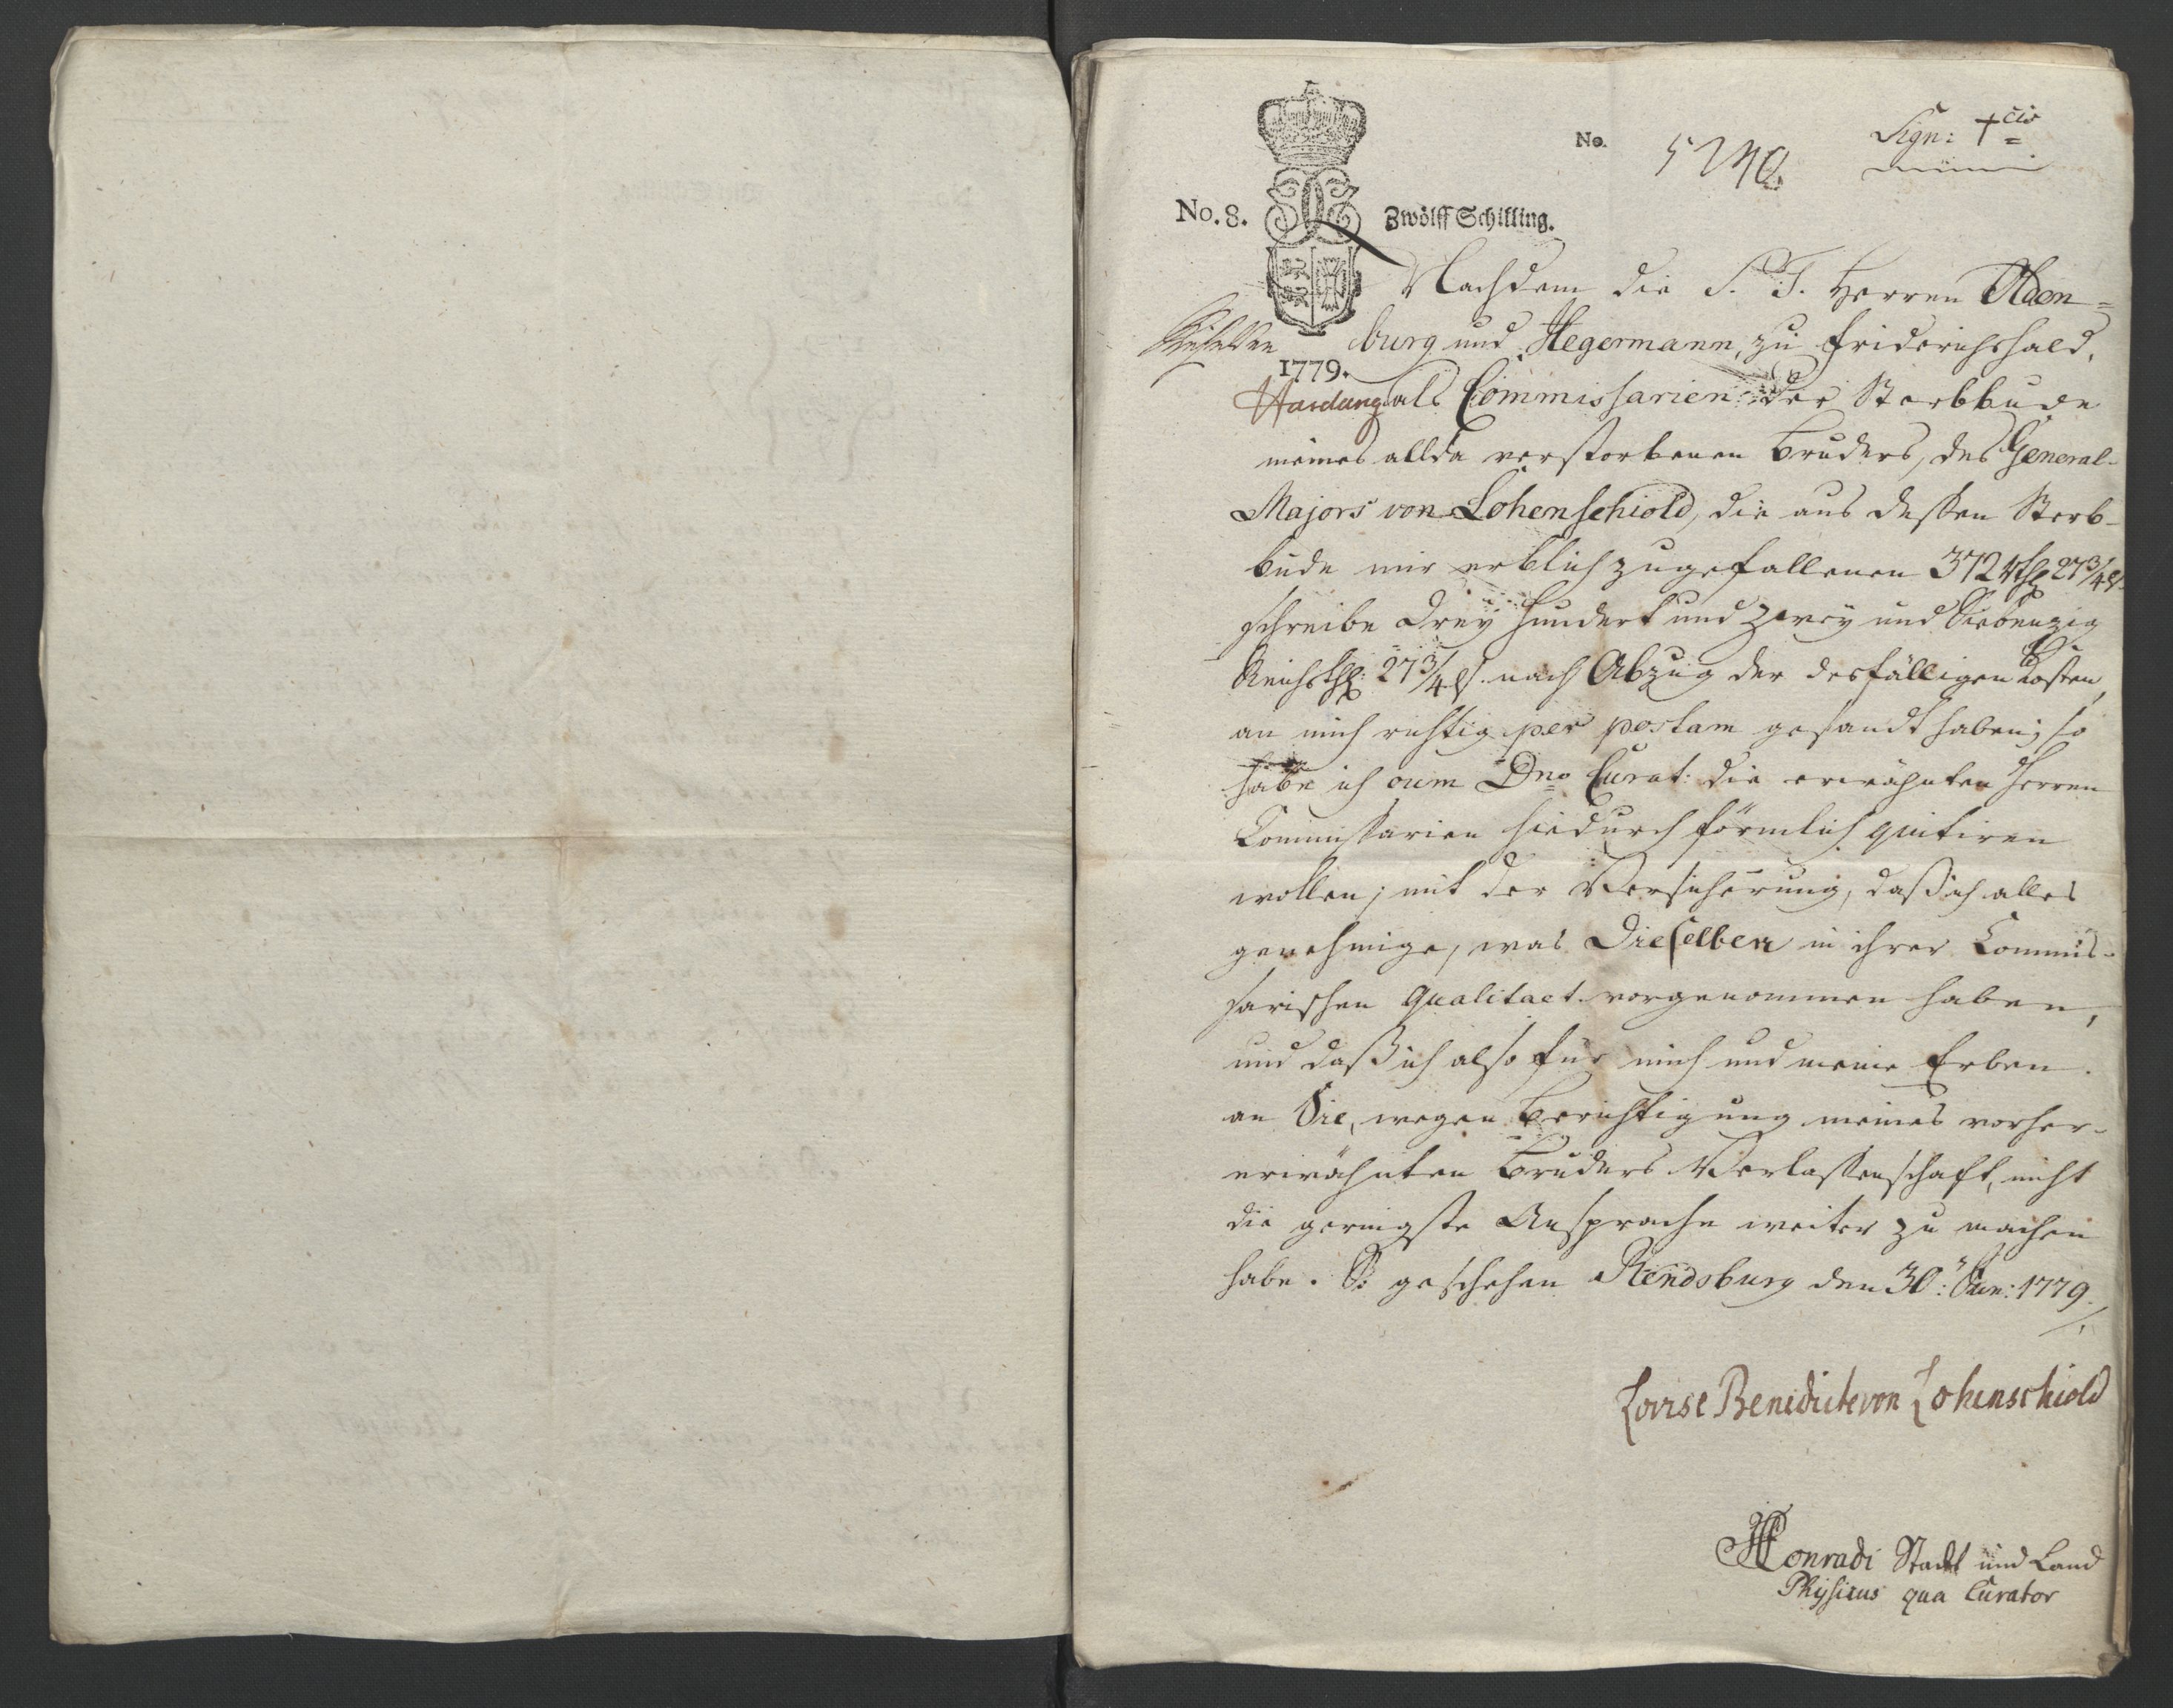 No.
5240.
Sign: +cis
No. 8.
Zwölff Schilling.
1779.
Nachdem die S. T. Herren Olden=
burg und Hegermann, zu Friderichshald,
als Commissarien der Sterbbude
meines allda verstorbenen Bruders, des General-
Majors von Lohenschiold, die aus dessen Sterb-
bude mir erblich zugefallenen 372 Rthlr 27 3/4 ß
schreibe Drey hundert und zwey und Siebenzig
Reichsthlr: 27 3/4 ß. nach Abzug der desfälligen Kosten,
an mich richtig per postam gesandt haben; so
habe ich cum Dno Curat: die erwähnten Herren
Commissarien hiedurch förmlich quitiren
wollen; mit der Versicherung, daß ich alles
genehmige, was Dieselben in ihrer Commis-
sarischen Qualitaet vorgenommen haben,
und daß ich also für mich und meine Erben
an Sie, wegen Berichtigung meines vorher-
erwähnten Bruders Verlassenschaft, nicht
die geringste Ansprache weiter zu machen
habe. So geschehen Rendsburg den 30: Jun: 1779.
Lovise Benedicte von Lohenschiold
Conradi Stadt und Land
Physicus qua Curator